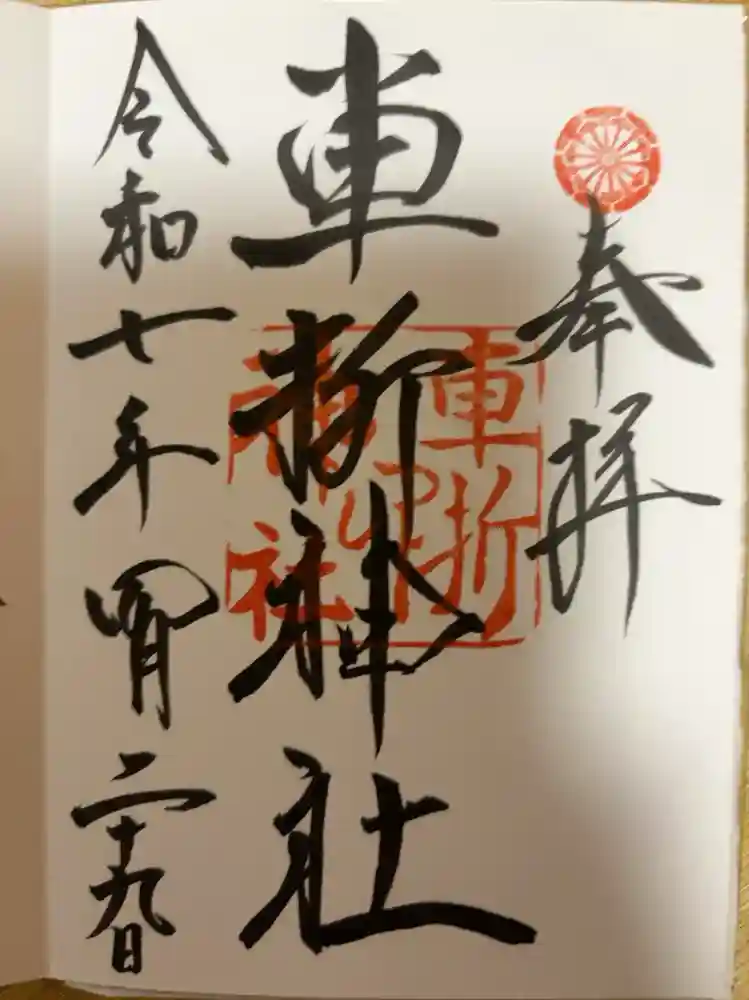 奉拝
車折神社
車折神社
令和七年四月二十九日